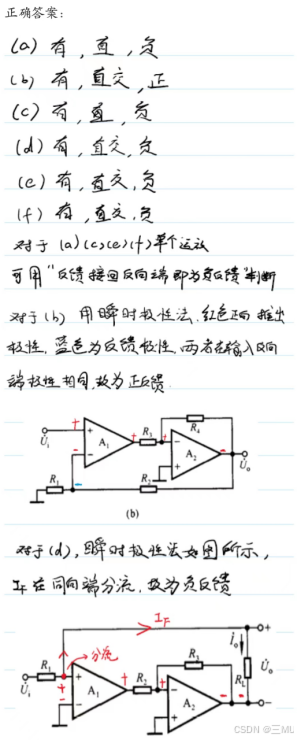 正确答案:
(a) 有,直,负
(b) 有,直交,正
(c) 有,直,负
(d) 有,直交,负
(e) 有,直交,负
(f) 有,直交,负
对于(a)(c)(e)(f)单个运放
可用"反馈接回反向端即为负反馈"判断
对于(b) 用瞬时极性法,红色正向推出
极性,蓝色为反馈极性,两者在输入反向
端极性相同,故为正反馈.
R3 R4
U̇i A1 A2 U̇o
R1 R2
(b)
对于(d),瞬时极性法如图所示,
IF在同向端分流,故为负反馈
IF
分流 İo
R1 R2 R3 RL U̇o
U̇i A1 A2
CSDN @三ML